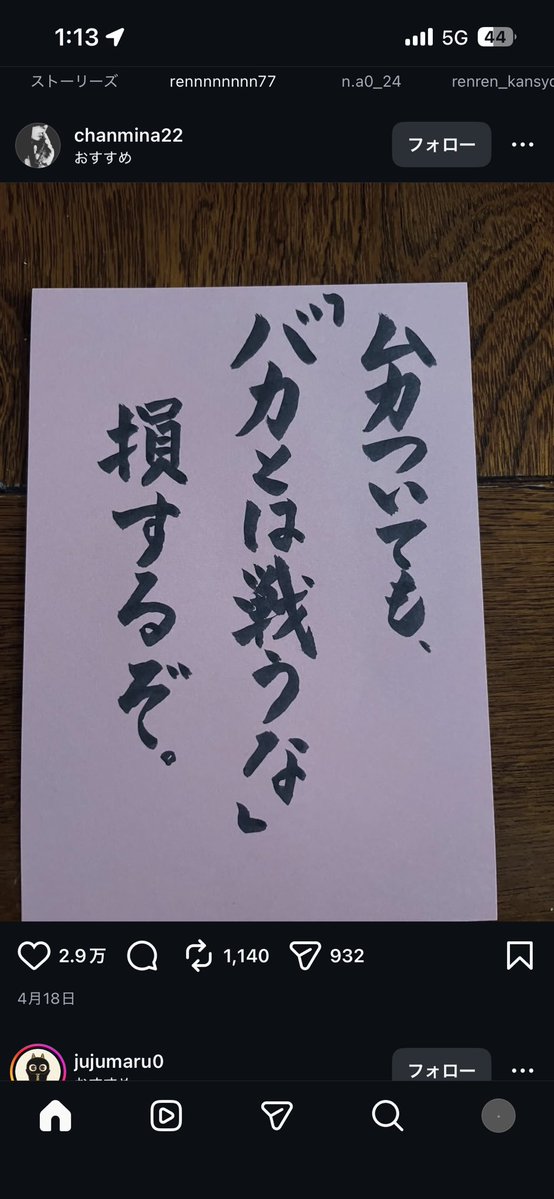 1:13
5G
44
ストーリーズ
rennnnnnnn77
n.a0_24
renren_kansyo
chanmina22
おすすめ
フォロー
ムカついても、
「バカとは戦うな」
損するぞ。
2.9万
1,140
932
4月18日
jujumaru0
フォロー